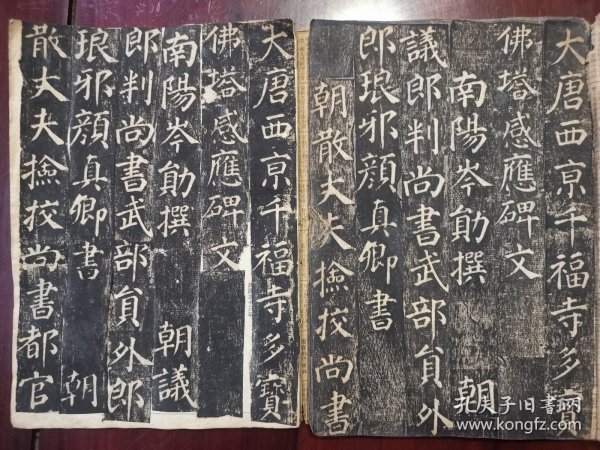 大唐西京千福寺多寶
佛塔感應碑文
南陽岑勛撰 朝
議郎判尚書武部員外
郎琅邪顏真卿書
朝散大夫撿挍尚書
大唐西京千福寺多寶
佛塔感應碑文
南陽岑勛撰 朝議
郎判尚書武部員外郎
琅邪顏真卿書 朝
散大夫撿挍尚書都官
孔夫子旧书网
www.kongfz.com